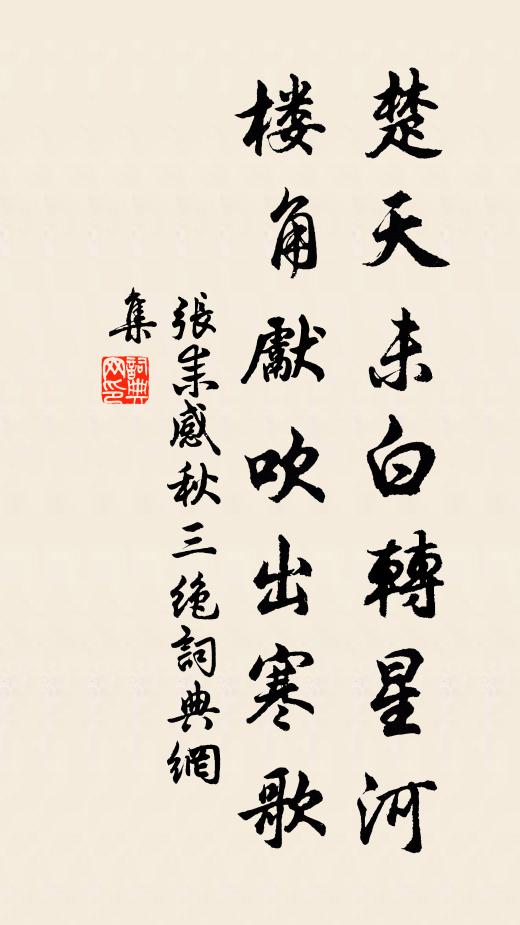 楚天未白轉星河
楼角獻吹出寒歌
張耒感秋三絶詞典網
集
詞典网印